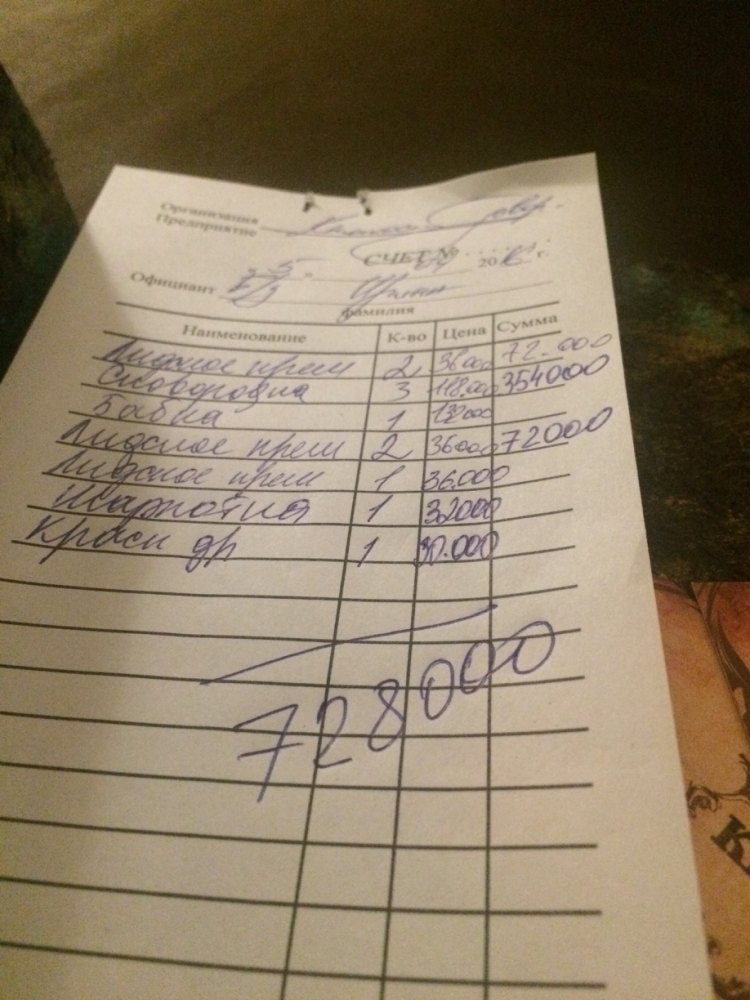 Организация
Предприятие
СЧЕТ № 2016 г.
Официант
фамилия
Наименование К-во Цена Сумма
Лидское прем 2 36000 72.000
Сковородка 3 118.000 354000
Бабка 1 132000
Лидское прем 2 36000 72000
Лидское прем 1 36.000
1 32000
др 1 30.000
728000